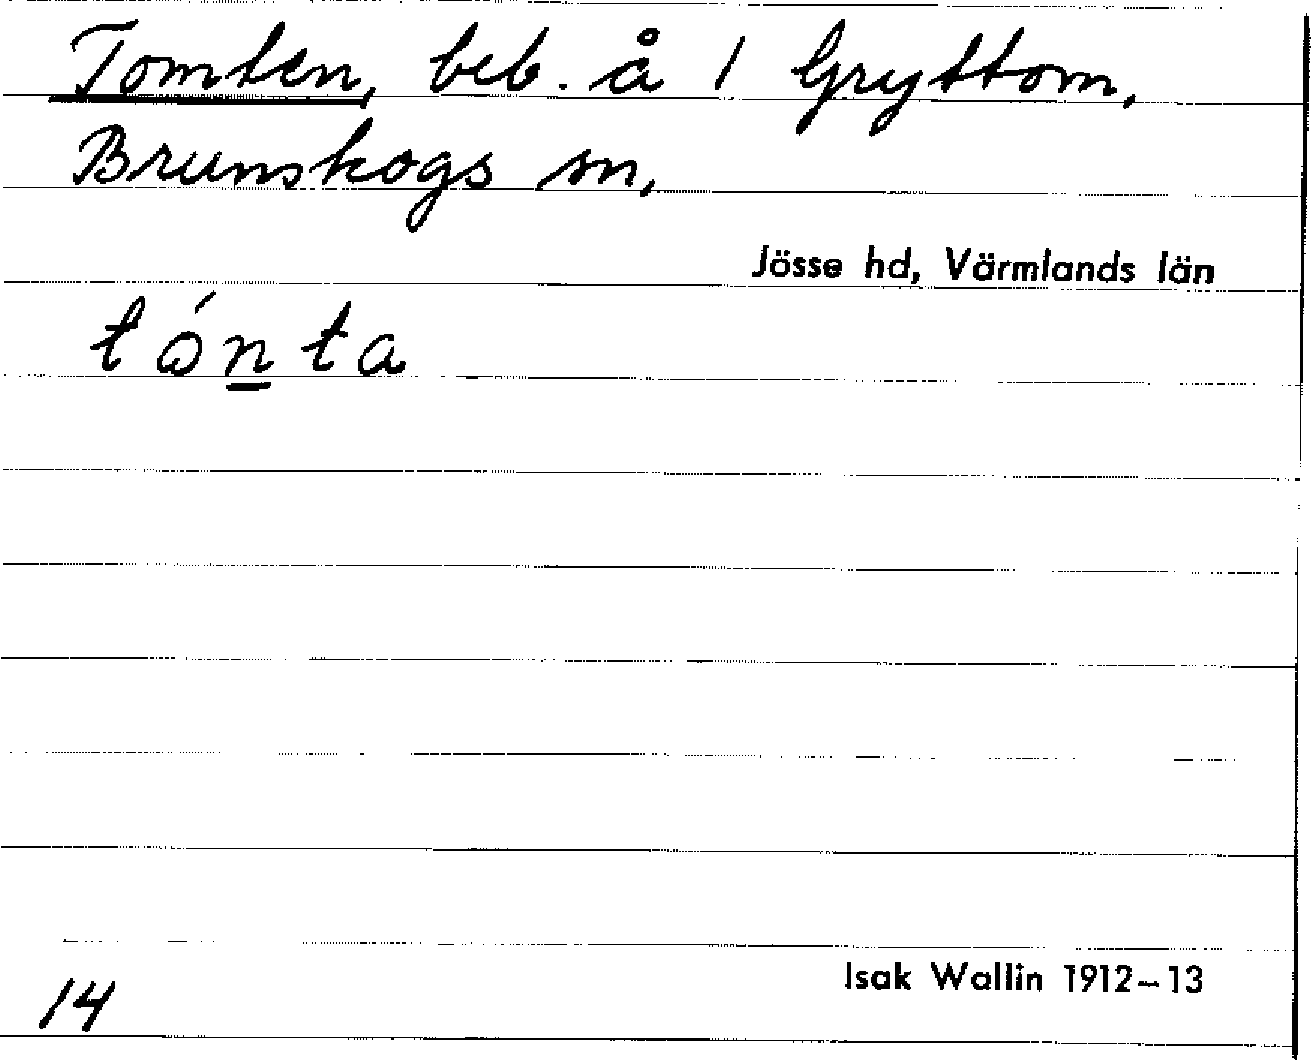 Tomten, beb. å 1 Gryttom,
Brunskogs sn,
Jösse hd, Värmlands län
tón̲ta
Isak Wallin 1912–13
14